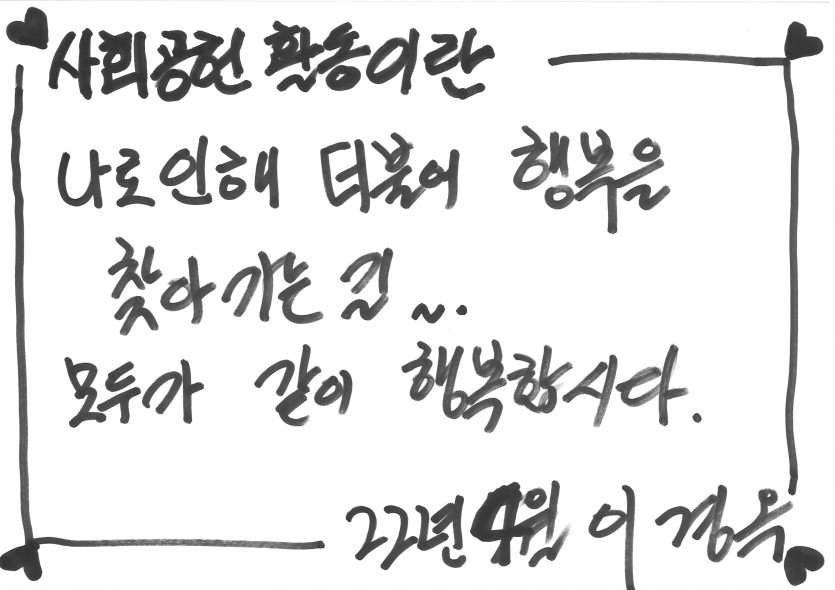 사회공헌 활동이란
나로 인해 더불어 행복을
찾아가는 길 ~.
모두가 같이 행복합시다.
22년 4월 이경옥